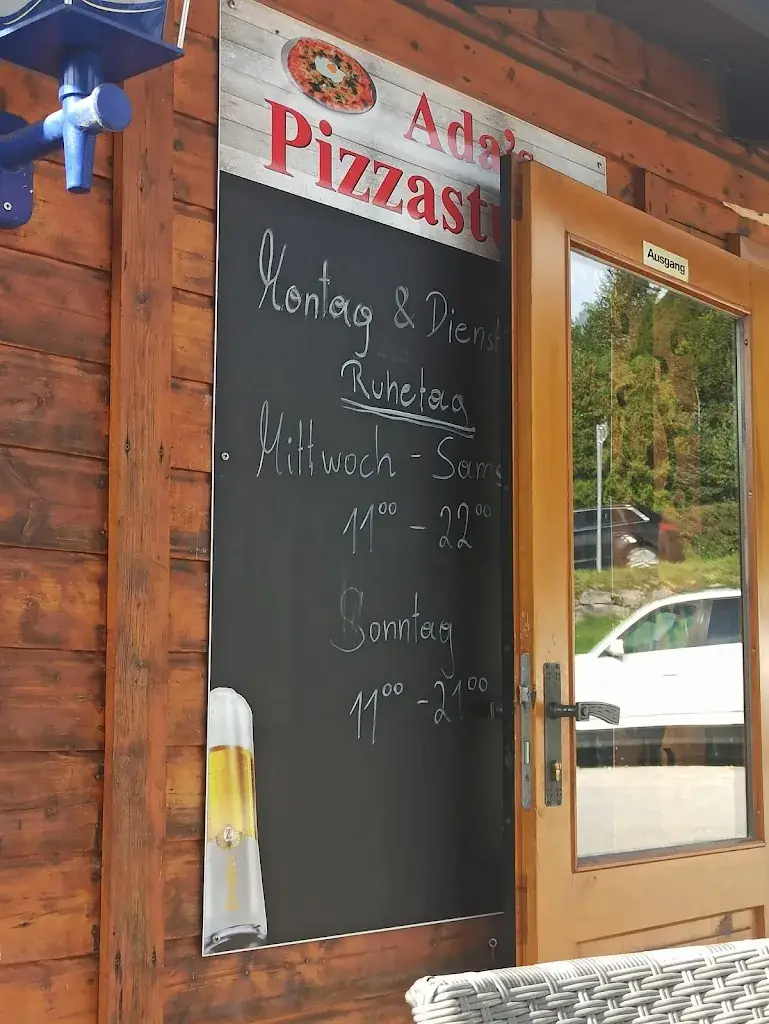 Ada's
Pizzast
Montag & Dienst
Ruhetag
Mittwoch - Sams
11⁰⁰ - 22⁰⁰
Sonntag
11⁰⁰ - 21⁰⁰
Ausgang
Z